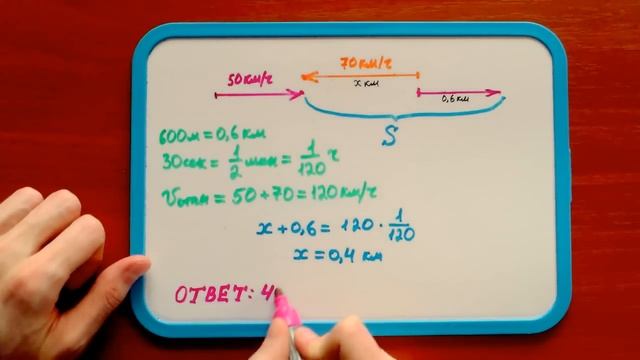 70 км/ч
50 км/ч
x км
0,6 км
S
600 м = 0,6 км
30 сек = 1/2 мин = 1/120 ч
Vотн = 50 + 70 = 120 км/ч
x + 0,6 = 120 · 1/120
x = 0,4 км
ОТВЕТ: 4